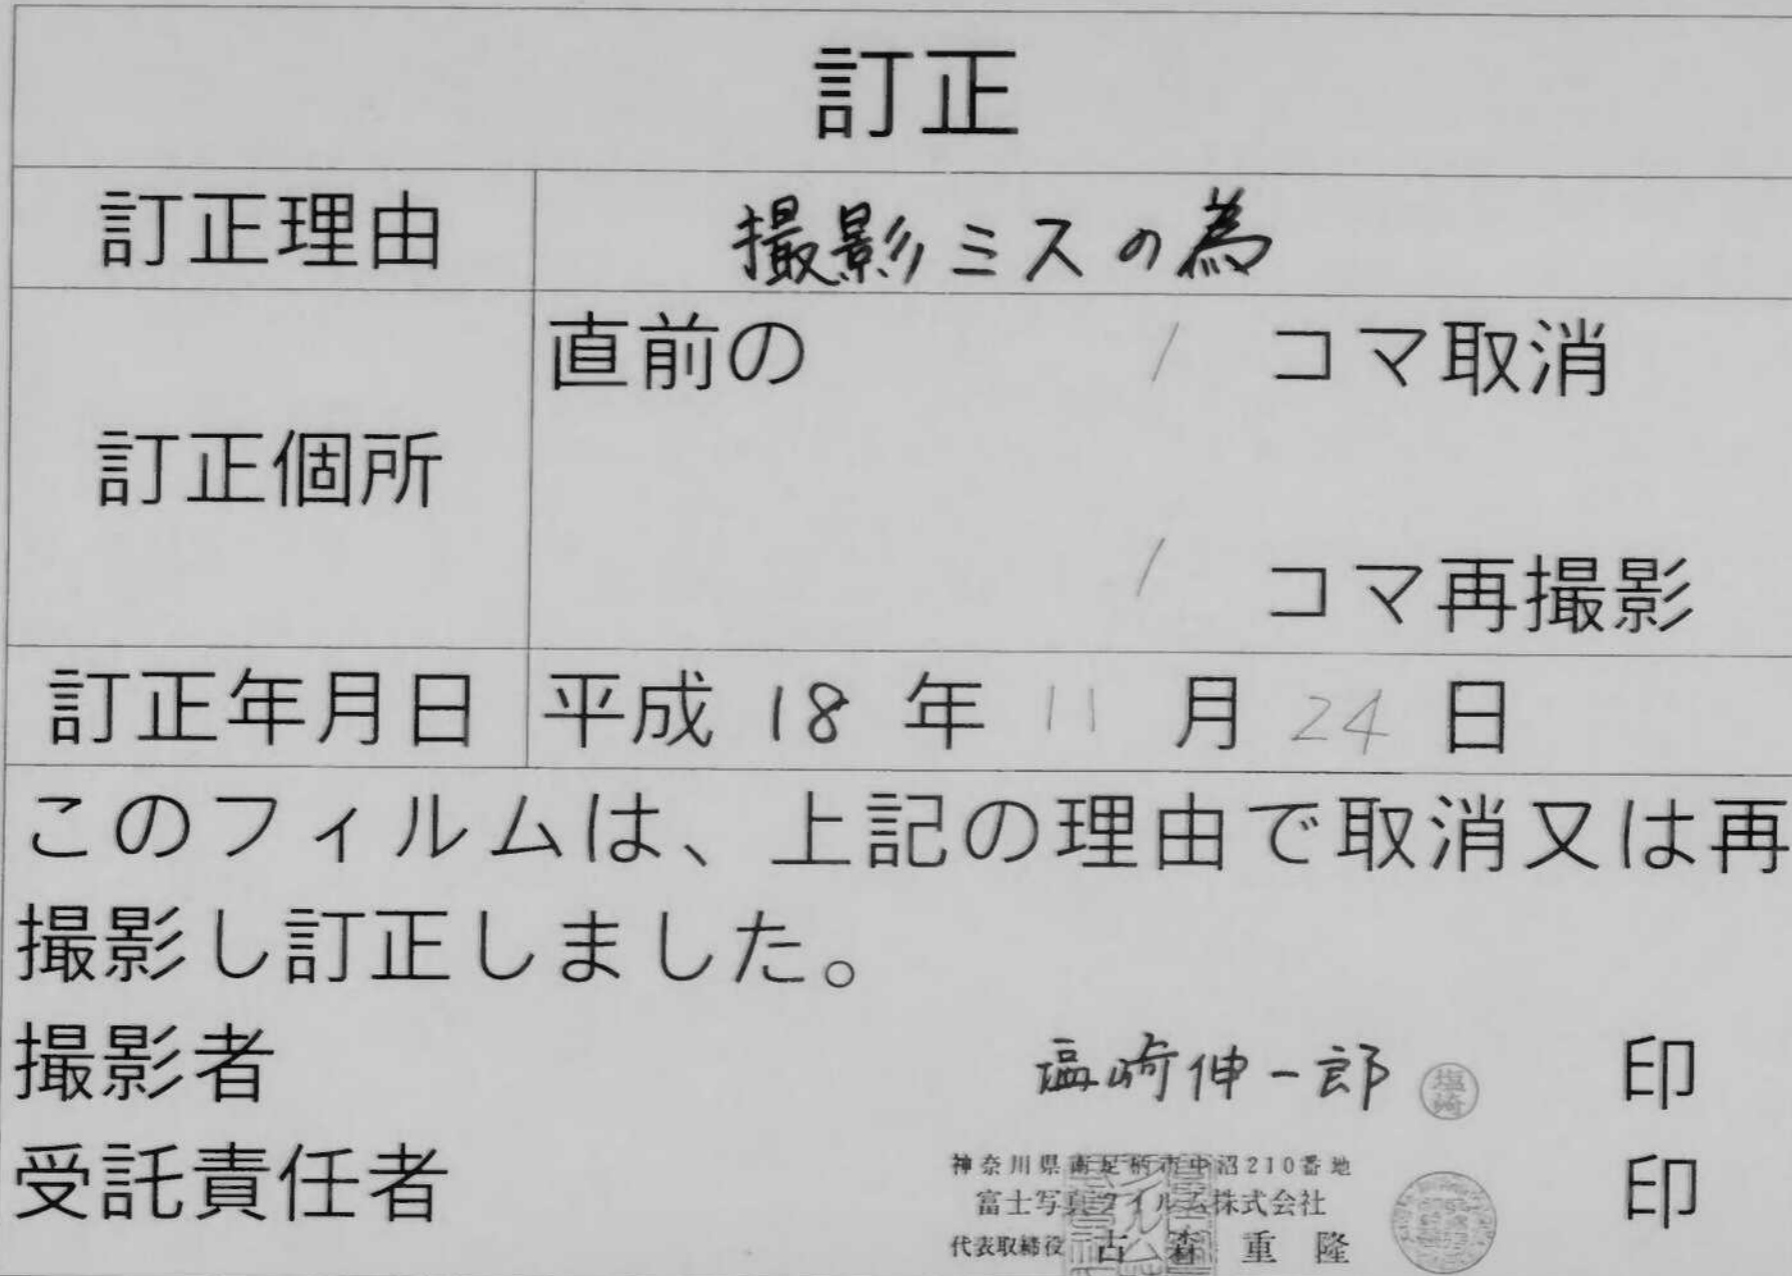 訂正
訂正理由 撮影ミスの為
直前の 1 コマ取消
訂正個所
1 コマ再撮影
訂正年月日 平成 18 年 11 月 24 日
このフィルムは、上記の理由で取消又は再
撮影し訂正しました。
撮影者 塩崎伸一郎 塩崎 印
受託責任者 印
神奈川県南足柄市中沼210番地
富士写真フイルム株式会社
代表取締役 古森重隆